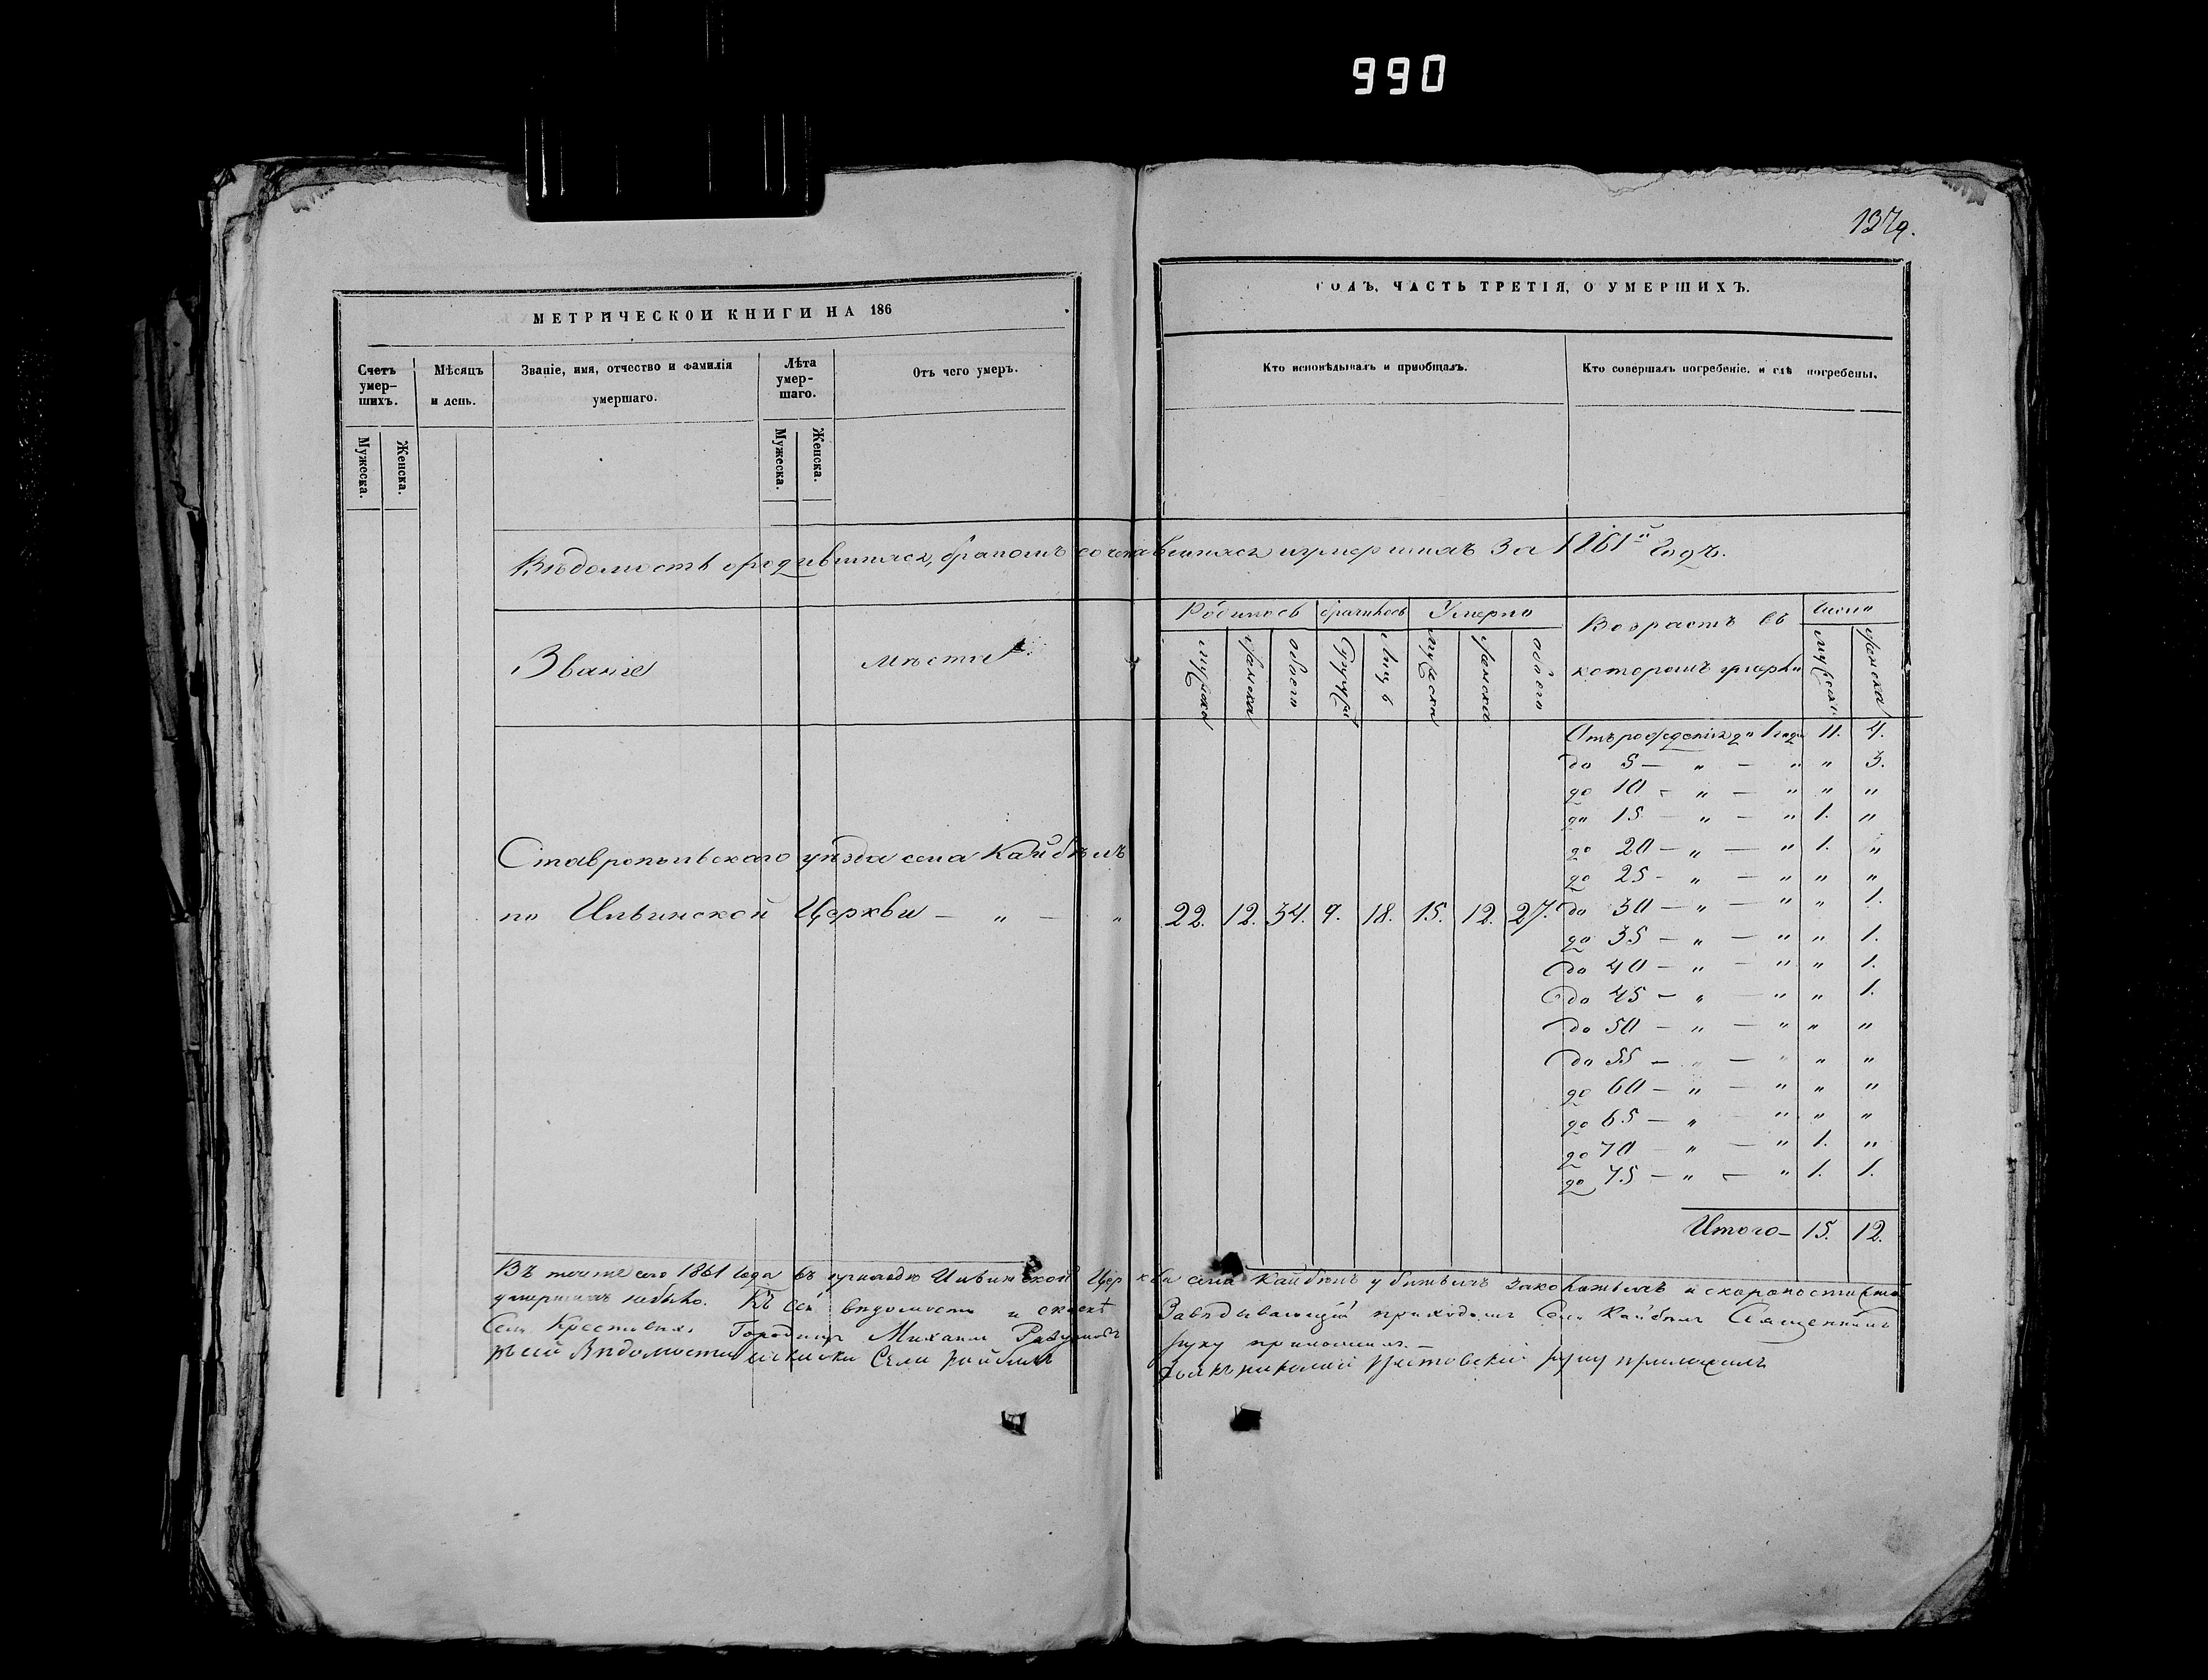 990
1379.
МЕТРИЧЕСКОЙ КНИГИ НА 186
ГОДЪ, ЧАСТЬ ТРЕТІЯ, О УМЕРШИХЪ.
Счетъ умер-
шихъ.
Мужеска.
Женска.
Мѣсяцъ
и день.
Званіе, имя, отчество и фамилія
умершаго.
Лѣта
умер-
шаго.
Мужеска.
Женска.
Отъ чего умеръ.
Кто исповѣдывалъ и пріобщалъ.
Кто совершалъ погребеніе, и гдѣ погребены.
Вѣдомость о родившихся, бракомъ сочетавшихся и умершихъ за 1861й Годъ.
Званіе мѣста
Родилось
мужеска
женска
обоего
бракилось
Супруж
лицъ
Умерло
мужеска
женска
обоего
Возрастъ въ
которомъ умерли
число
мужеска
женска
Отъ рожденія до 1 года 11. 4.
до 5 — „ — „ „ 3.
до 10 — „ — „ „ „
до 15 — „ — „ 1. „
до 20 — „ — „ 1. „
до 25 — „ — „ „ „
до 30 — „ — „ „ 1.
до 35 — „ — „ „ 1.
до 40 — „ — „ „ 1.
до 45 — „ — „ „ 1.
до 50 — „ — „ „ „
до 55 — „ — „ „ „
до 60 — „ — „ „ „
до 65 — „ — „ „ „
до 70 — „ — „ 1. „
до 75 — „ — „ 1. 1.
Итого — 15. 12.
Ставропольскаго уѣзда села Кайбѣлъ
по Ильинской Церкви — „ — „ 22. 12. 34. 9. 18. 15. 12. 27.
Въ теченіе сего 1861 года въ приходѣ Ильинской Церкви села Кайбѣлъ убитыхъ и скоропостижно
умершихъ небыло. Къ сей вѣдомости Завѣдывающій приходомъ Села Кайбѣлъ Священникъ
Села Крестовыхъ Городищъ Михаилъ руку приложилъ.—
къ сей Вѣдомости Села Кайбѣлъ руку приложилъ